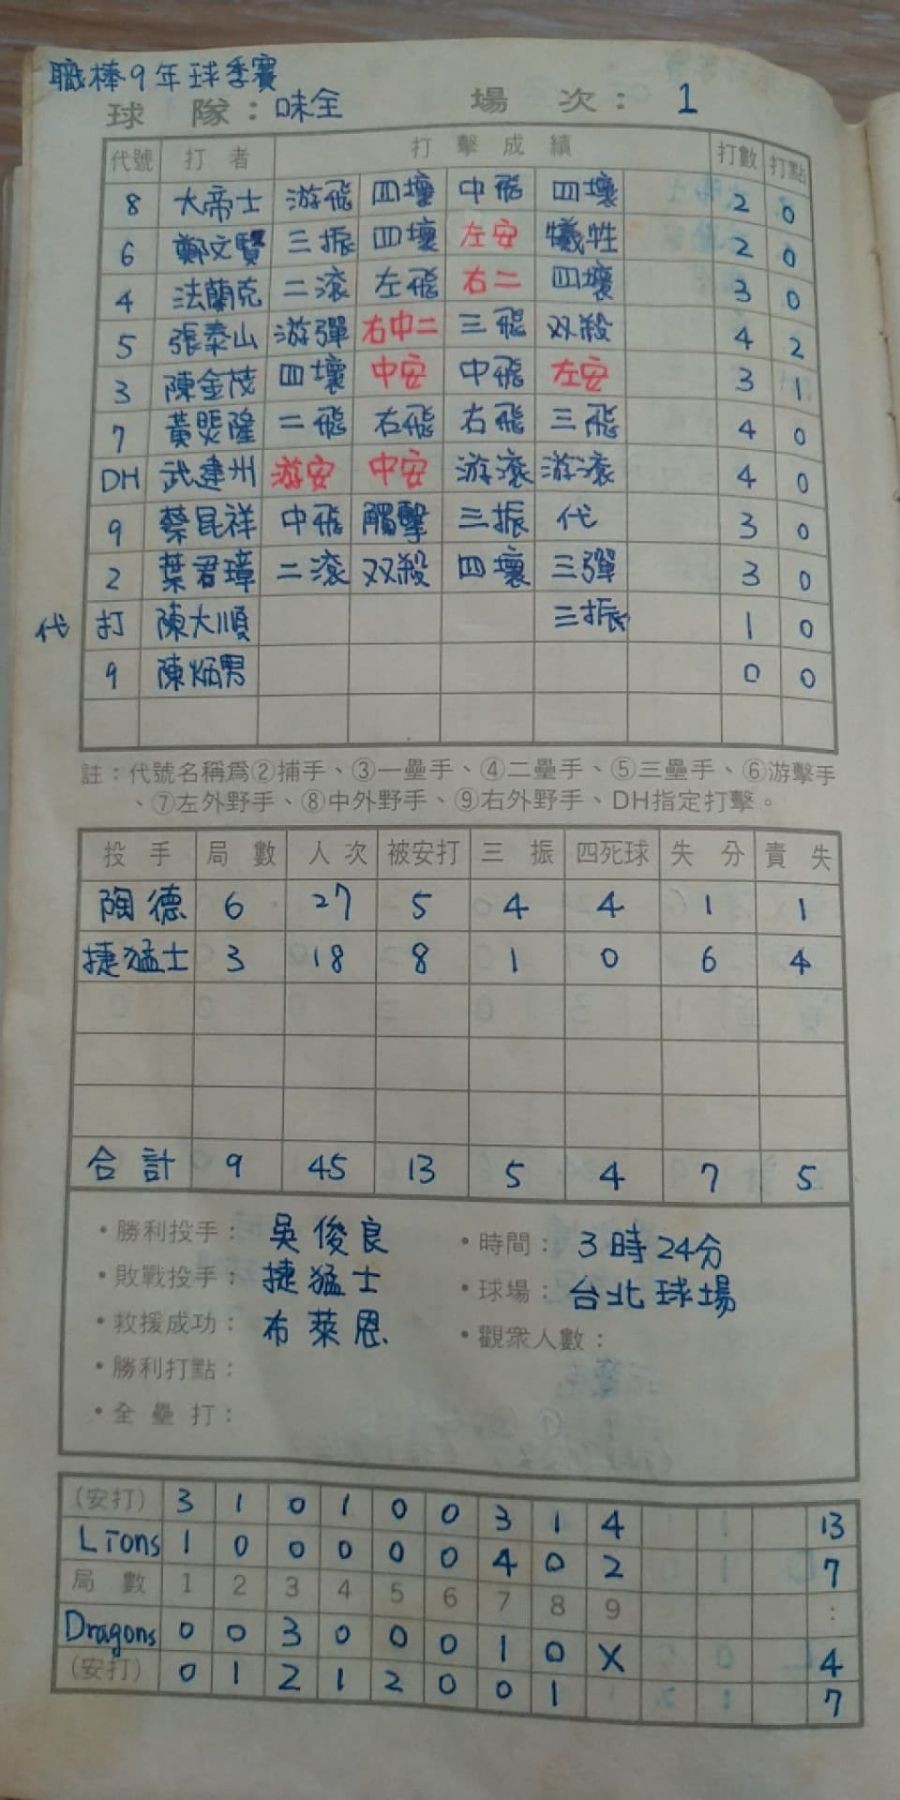 職棒9年球季賽
球 隊：味全 場 次： 1
代號 打 者 打 擊 成 績 打數 打點
8 大帝士 游飛 四壞 中飛 四壞 2 0
6 鄭文賢 三振 四壞 左安 犧牲 2 0
4 法蘭克 二滾 左飛 右二 四壞 3 0
5 張泰山 游彈 右中二 三飛 双殺 4 2
3 陳金茂 四壞 中安 中飛 左安 3 1
7 黃煚隆 二飛 右飛 右飛 三飛 4 0
DH 武建州 游安 中安 游滾 游滾 4 0
9 蔡昆祥 中飛 觸擊 三振 代 3 0
2 葉君璋 二滾 双殺 四壞 三彈 3 0
代 打 陳大順 三振 1 0
9 陳炳男 0 0
註：代號名稱爲②捕手、③一壘手、④二壘手、⑤三壘手、⑥游擊手
、⑦左外野手、⑧中外野手、⑨右外野手、DH指定打擊。
投 手 局 數 人 次 被安打 三 振 四死球 失 分 責 失
陶德 6 27 5 4 4 1 1
捷猛士 3 18 8 1 0 6 4
合計 9 45 13 5 4 7 5
•勝利投手： 吳俊良 •時間： 3時24分
•敗戰投手： 捷猛士 •球場： 台北球場
•救援成功： 布萊恩 •觀衆人數：
•勝利打點：
•全 壘 打：
(安打) 3 1 0 1 0 0 3 1 4 13
Lions 1 0 0 0 0 0 4 0 2 7
局 數 1 2 3 4 5 6 7 8 9 :
Dragons 0 0 3 0 0 0 1 0 X 4
(安打) 0 1 2 1 2 0 0 1 7